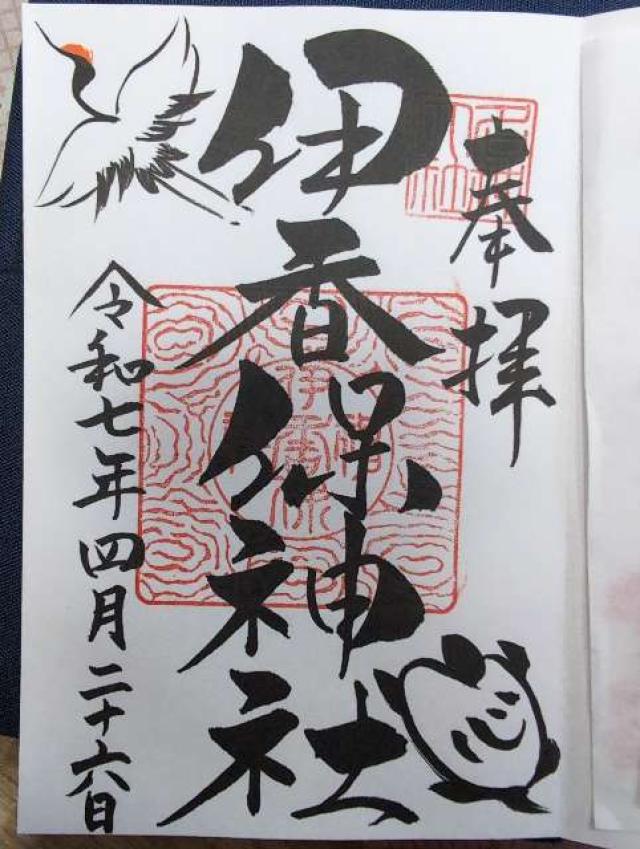 奉拝
伊香保神社
令和七年四月二十六日
心